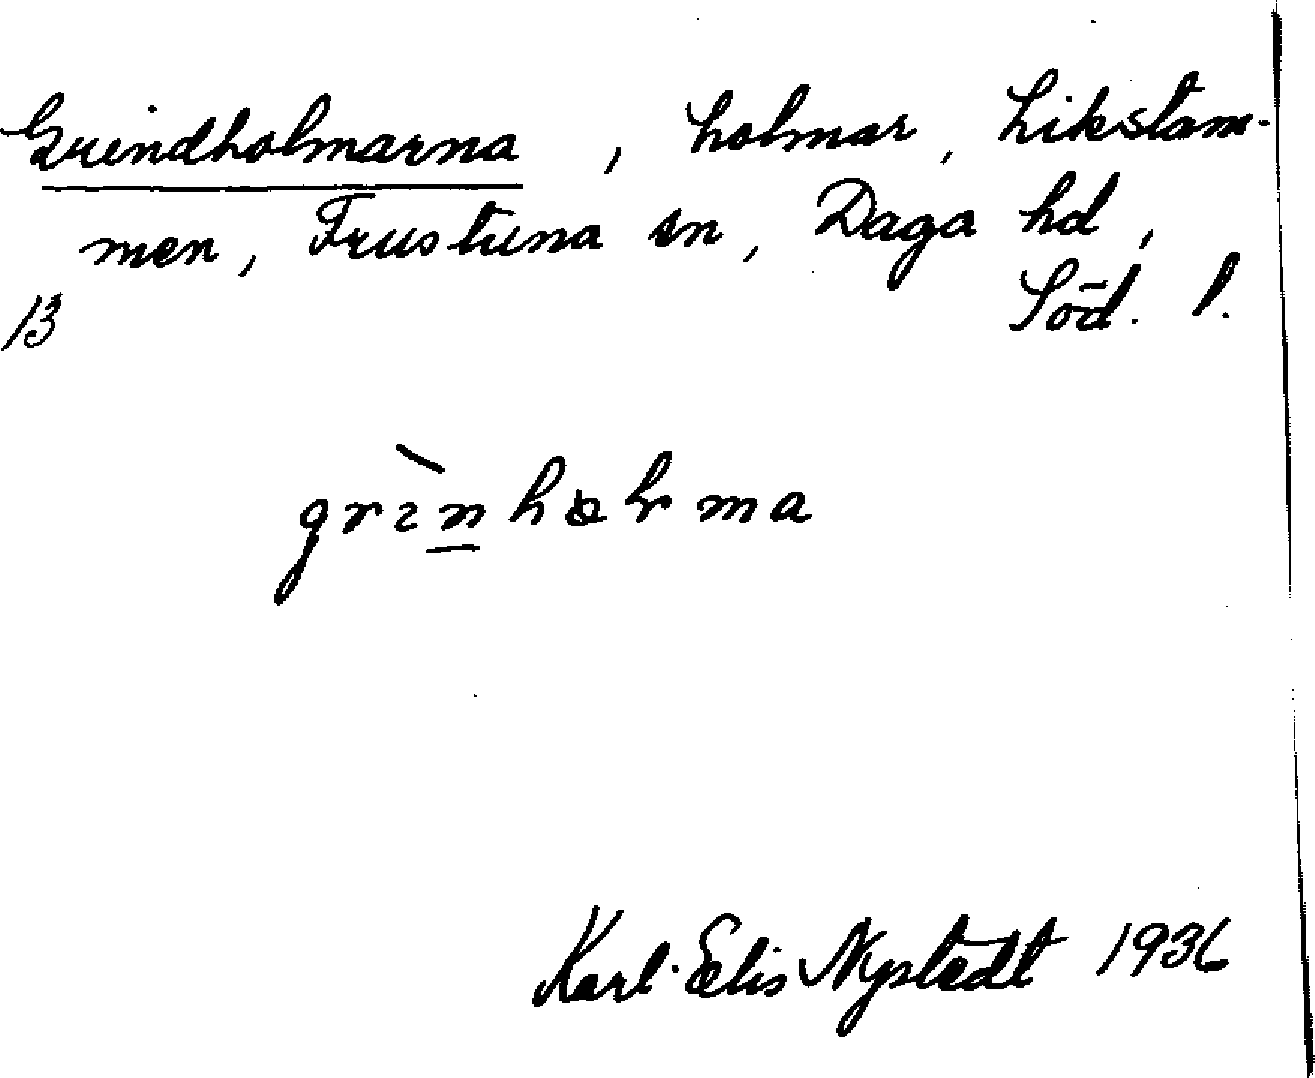 Grindholmarna, holmar, Likstam-
men, Frustuna sn, Daga hd,
13 Söd. l.
grìn̲hɷlma
Karl-Elis Nystedt 1936